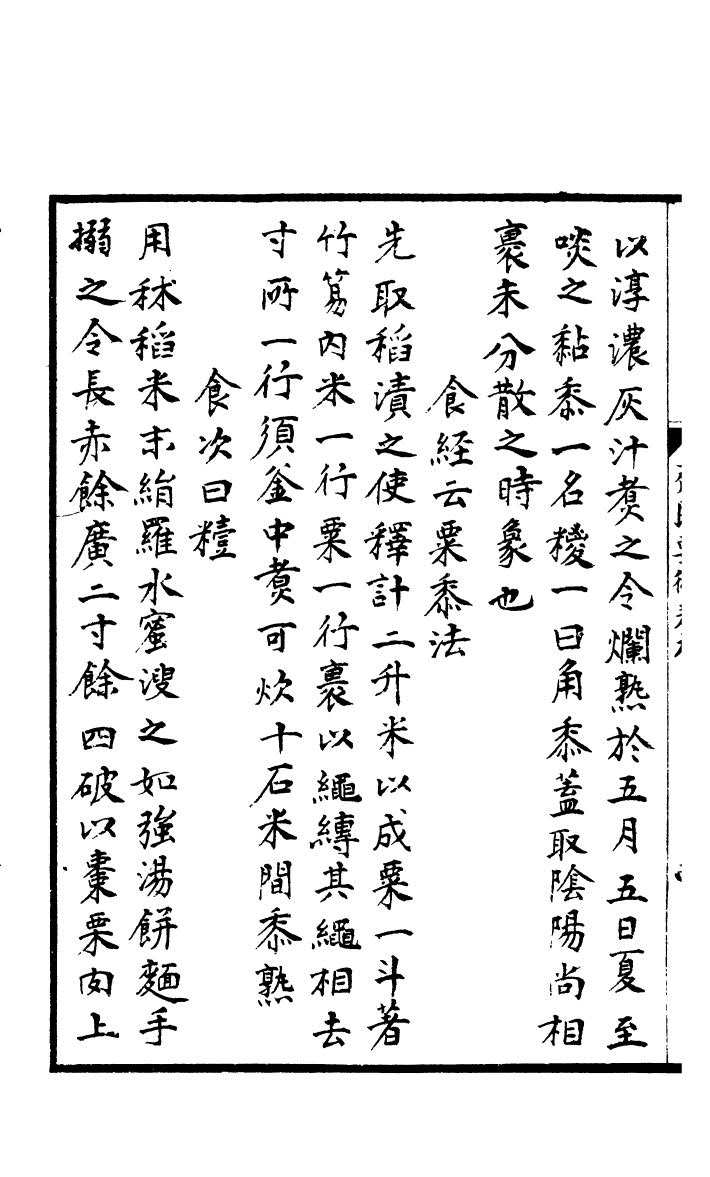 以淳濃灰汁煑之令爛熟於五月五日夏至
啖之黏黍一名糉一曰角黍葢取陰陽尚相
裹未分散之時象也
食經云粟黍法
先取稻漬之使釋計二升米以成粟一斗著
竹䈬内米一行粟一行裹以繩縛其繩相去
寸所一行須釜中煑可炊十石米間黍熟
食次曰𥼷
用秫稻米末絹羅水蜜溲之如強湯餅麵手
搦之令長赤餘廣二寸餘四破以棗栗肉上